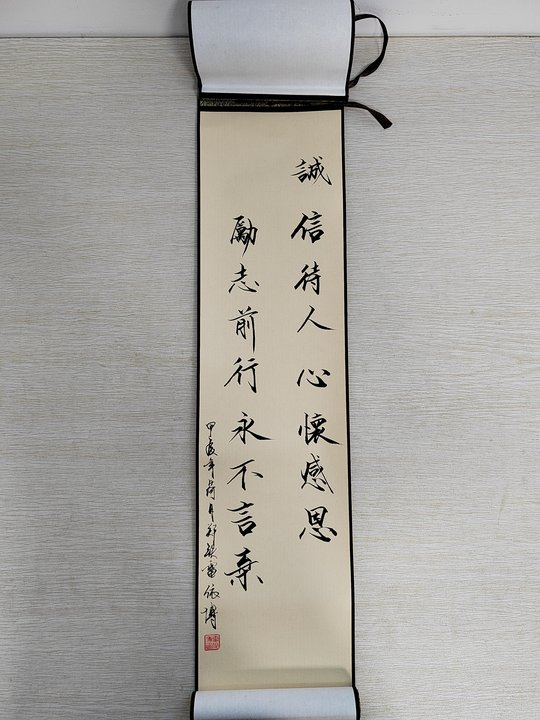 誠信待人心懷感恩
勵志前行永不言棄
甲辰年荷月